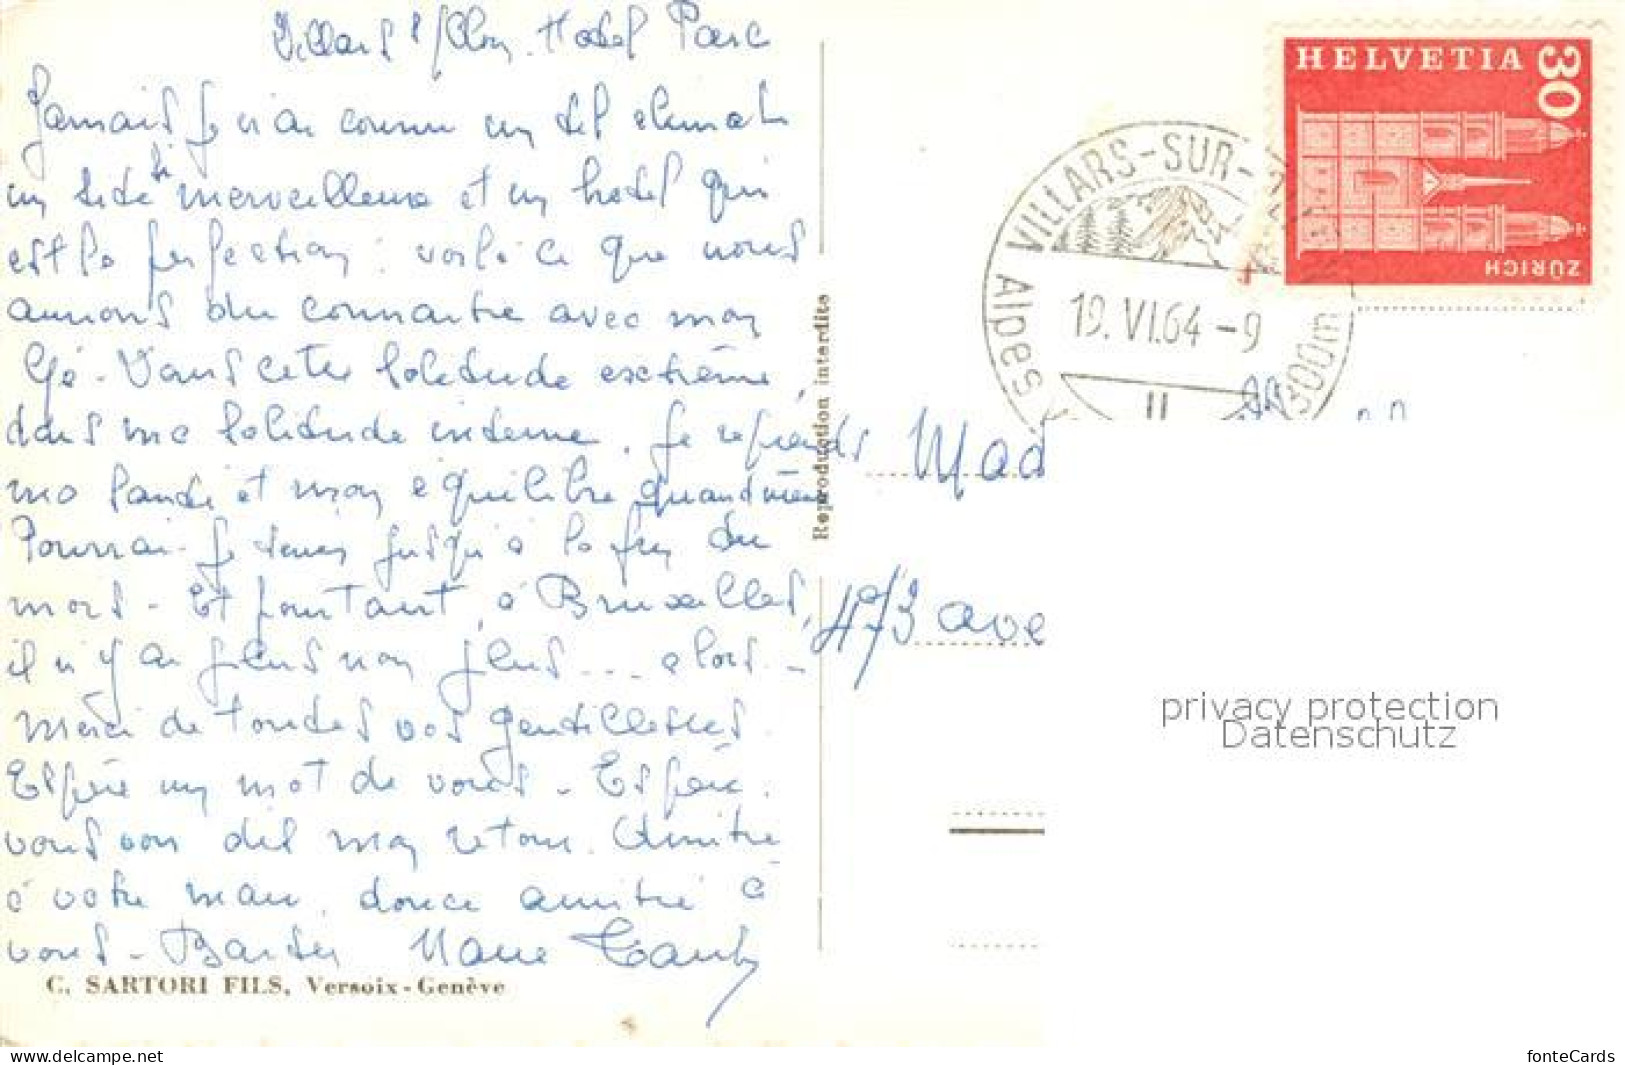 Villars s/Ollon. Hotel Parc
Jamais je n'ai connu un tel climat
un site si merveilleux et un hotel qui
est la perfection : voilà ce que nous
aurons du connaitre avec mon
Gé - Dans cette solitude extrême,
dans ma solitude interne, je reprends
ma santé et mon équilibre quand même
Pourrai-je tenir jusqu'à la fin du
mois - Et pourtant, à Bruxelles,
il n'y a plus non plus ... alors -
Merci de toutes vos gentillesses.
Espère un mot de vous - Espère
vous voir dès mon retour. Amitié
à votre mari, douce amitié à
vous - Baiser Marie
C. SARTORI FILS, Versoix-Genève
Reproduction interdite
HELVETIA
30
ZÜRICH
VILLARS-SUR-
Alpes
1300m
19.VI.64-9
Mad
473 ave
privacy protection
Datenschutz
www.delcampe.net
fonteCards